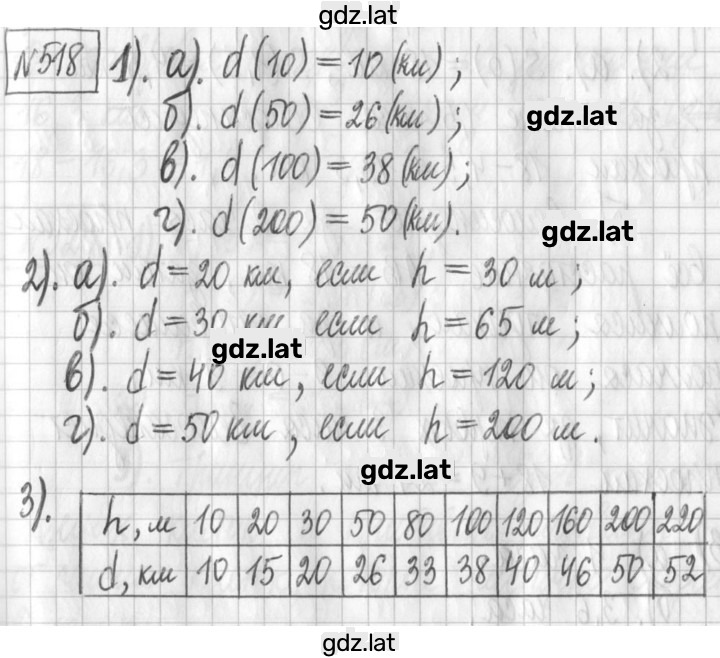 gdz.lat
№518 1). а). d(10) = 10 (км);
б). d(50) = 26 (км);
gdz.lat
в). d(100) = 38 (км);
г). d(200) = 50 (км).
gdz.lat
2). а). d = 20 км, если h = 30 м;
б). d = 30 км если h = 65 м;
gdz.lat
в). d = 40 км, если h = 120 м;
г). d = 50 км, если h = 200 м.
gdz.lat
3).
h, м 10 20 30 50 80 100 120 160 200 220
d, км 10 15 20 26 33 38 40 46 50 52
gdz.lat